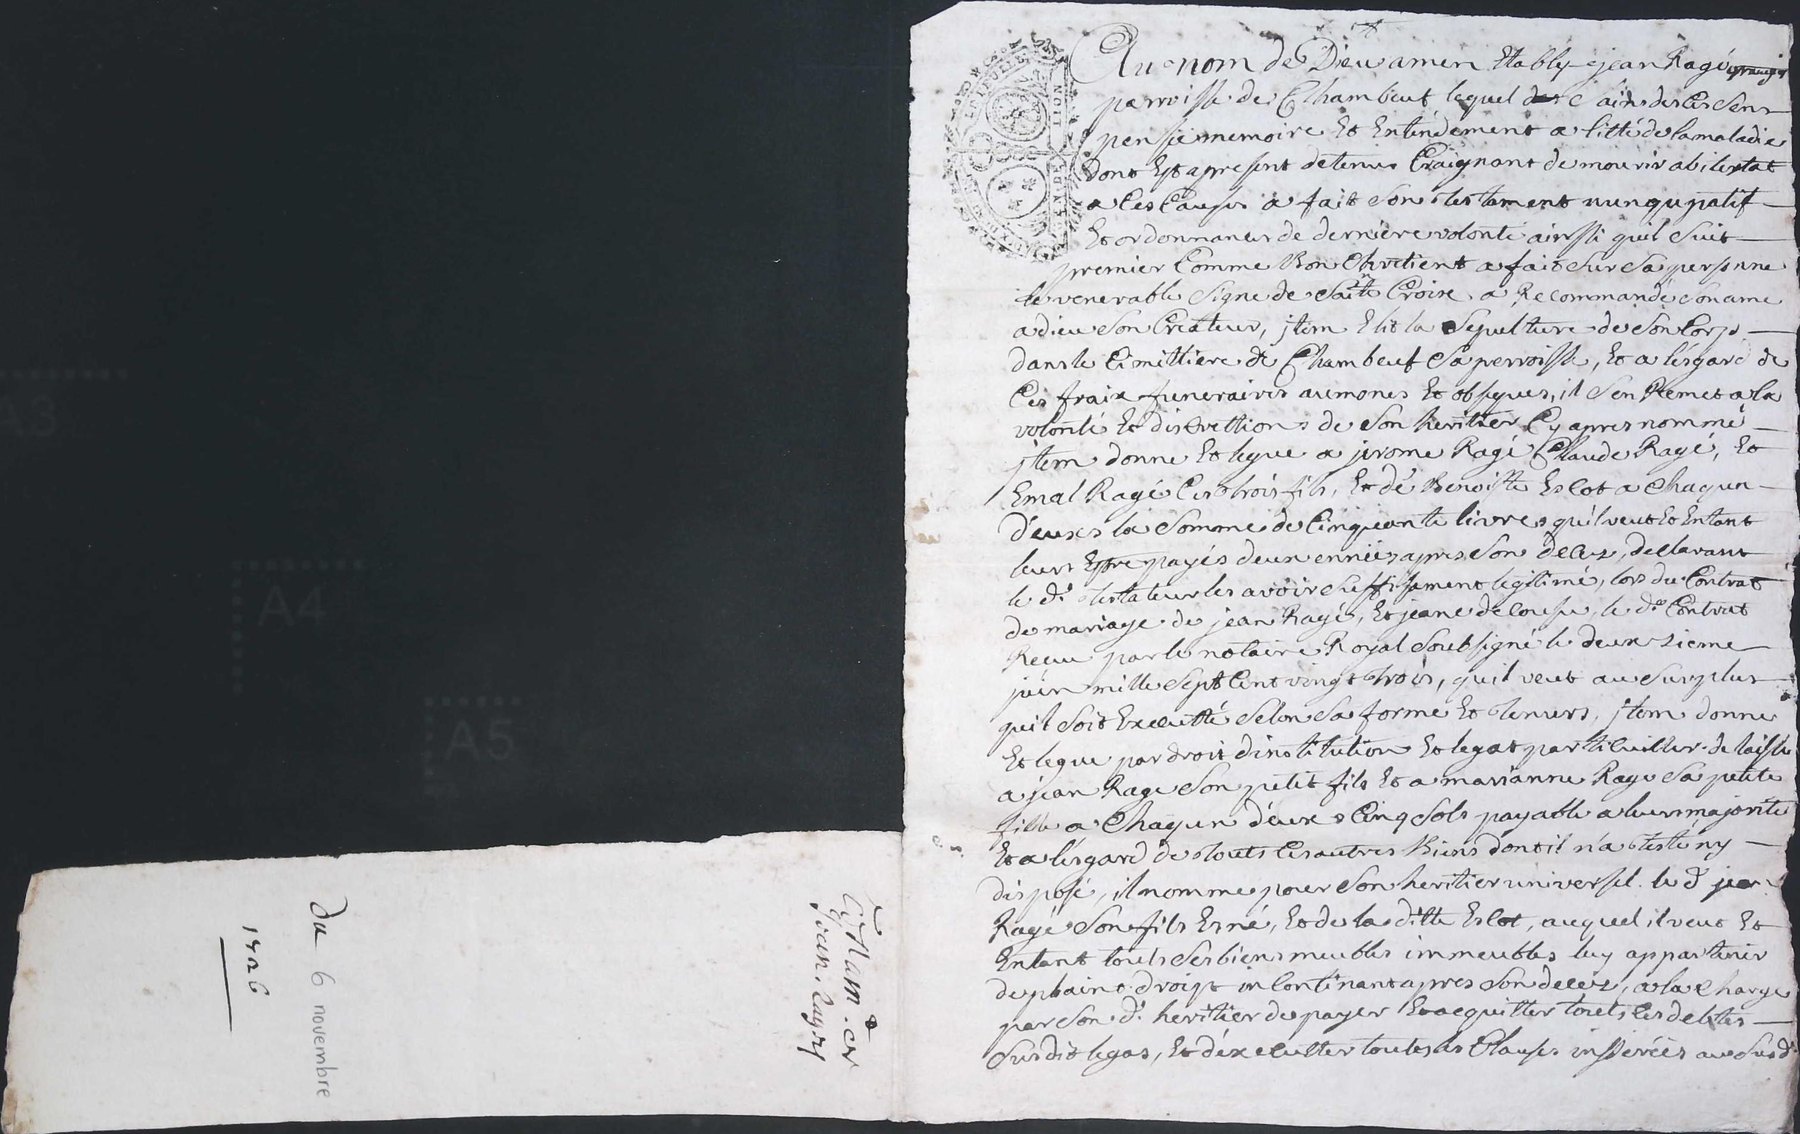 Au nom de Dieu amen Etably jean Ragé
parroisse de Chambeut lequel ains de ces sens
pensée memoire Et Entendement a litté de la maladie
dont Est apresent detenu Craignant de mourir abilentat
a Ces Causes a fait son testament nunqupatif
Et ordonnance de derniere volonté ainssi quil suit
premier Comme Bon Chretient a fait sur sa personne
le venerable signe de Sainte Croix a Recommandé son ame
a dieu son Createur, jtem Elit la Sepulture de son Corps
dans le Cimittiere de Chambeut sa perroisse, Et a l'esgard de
Ces fraix funeraires aumones Et obseques, il s'en Remet a la
volonté Et discrettion de son heritier Cy apres nommé
jtem donne Et legue a jerome Ragé Claude Ragé, Et
Emal Ragé Ces trois fils, Et de Benoiste Eslot a Chaqun
d'euxs la somme de Cinquante livres qu'il veut Et Entant
leurs Estre payés deux années apres son deces, declarant
le d. testateur les avoir suffisament legitimé, lors du Contrat
de mariage de jean Ragé, Et jeane le d. Contrat
Receu par le notaire Royal soubsigné le deuxsieme
juin mille sept Cent vingt trois, quil veut au surplus
quil soit Executté selon sa forme Et teneurs, jtem donne
Et legue par droit dinstitution Et legat particuillier delaisse
a jean Rage son petit fils Et a marianne Rage sa petite
fille a Chaqun d'eux Cinq sols payable a leurs majorité
Et a l'esgard de touts Ces autres Biens dont il n'a testé ny
disposé, il nomme pour son heritier universel le d. jean
Ragé son fils Esné, Et de la ditte Eslot, auquel il veut Et
Entant touts ses biens meubles immeubles luy appartenir
de plaint droipt in Continant apres son deces, a la Charge
par son d. heritier de payer Et acquitter touts Ces debtes
susdit legas, Et d'executter toutes les Clauses inserées au susd.
A3
A4
A5
Jean Ragé
Du 6 novembre
1726